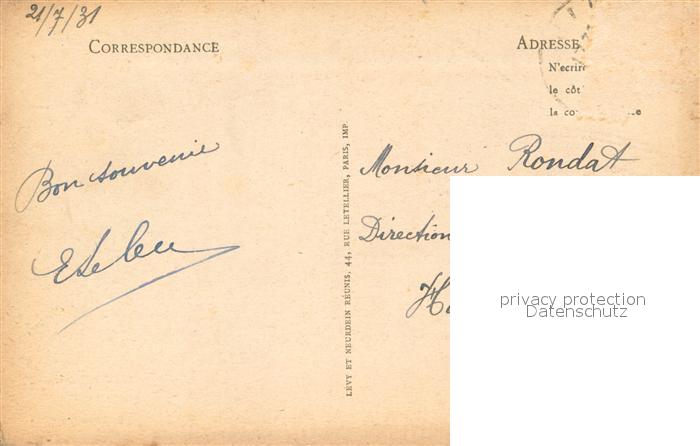 21/7/31
CORRESPONDANCE
ADRESSE
N'ecrire
le côt
la co e
Bon souvenir
Monsieur Rondat
Direction
LÉVY ET NEURDEIN RÉUNIS, 44, RUE LETELLIER, PARIS, IMP.
privacy protection
Datenschutz